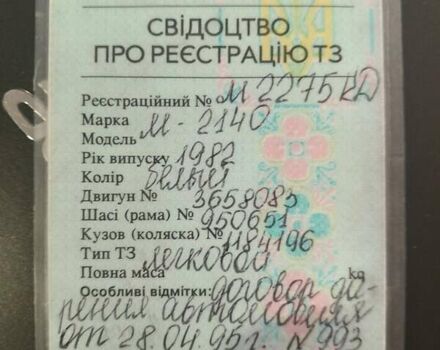 СВІДОЦТВО
ПРО РЕЄСТРАЦІЮ ТЗ
Реєстраційний № М 2275 КД
Марка М-2140
Модель
Рік випуску 1982
Колір белый
Двигун № 3658083
Шасі (рама) № 950651
Кузов (коляска) № 1184196
Тип ТЗ легковой
Повна маса kg
Особливі відмітки: договор да-
рения автомобиля
от 28.04.95г. N 993